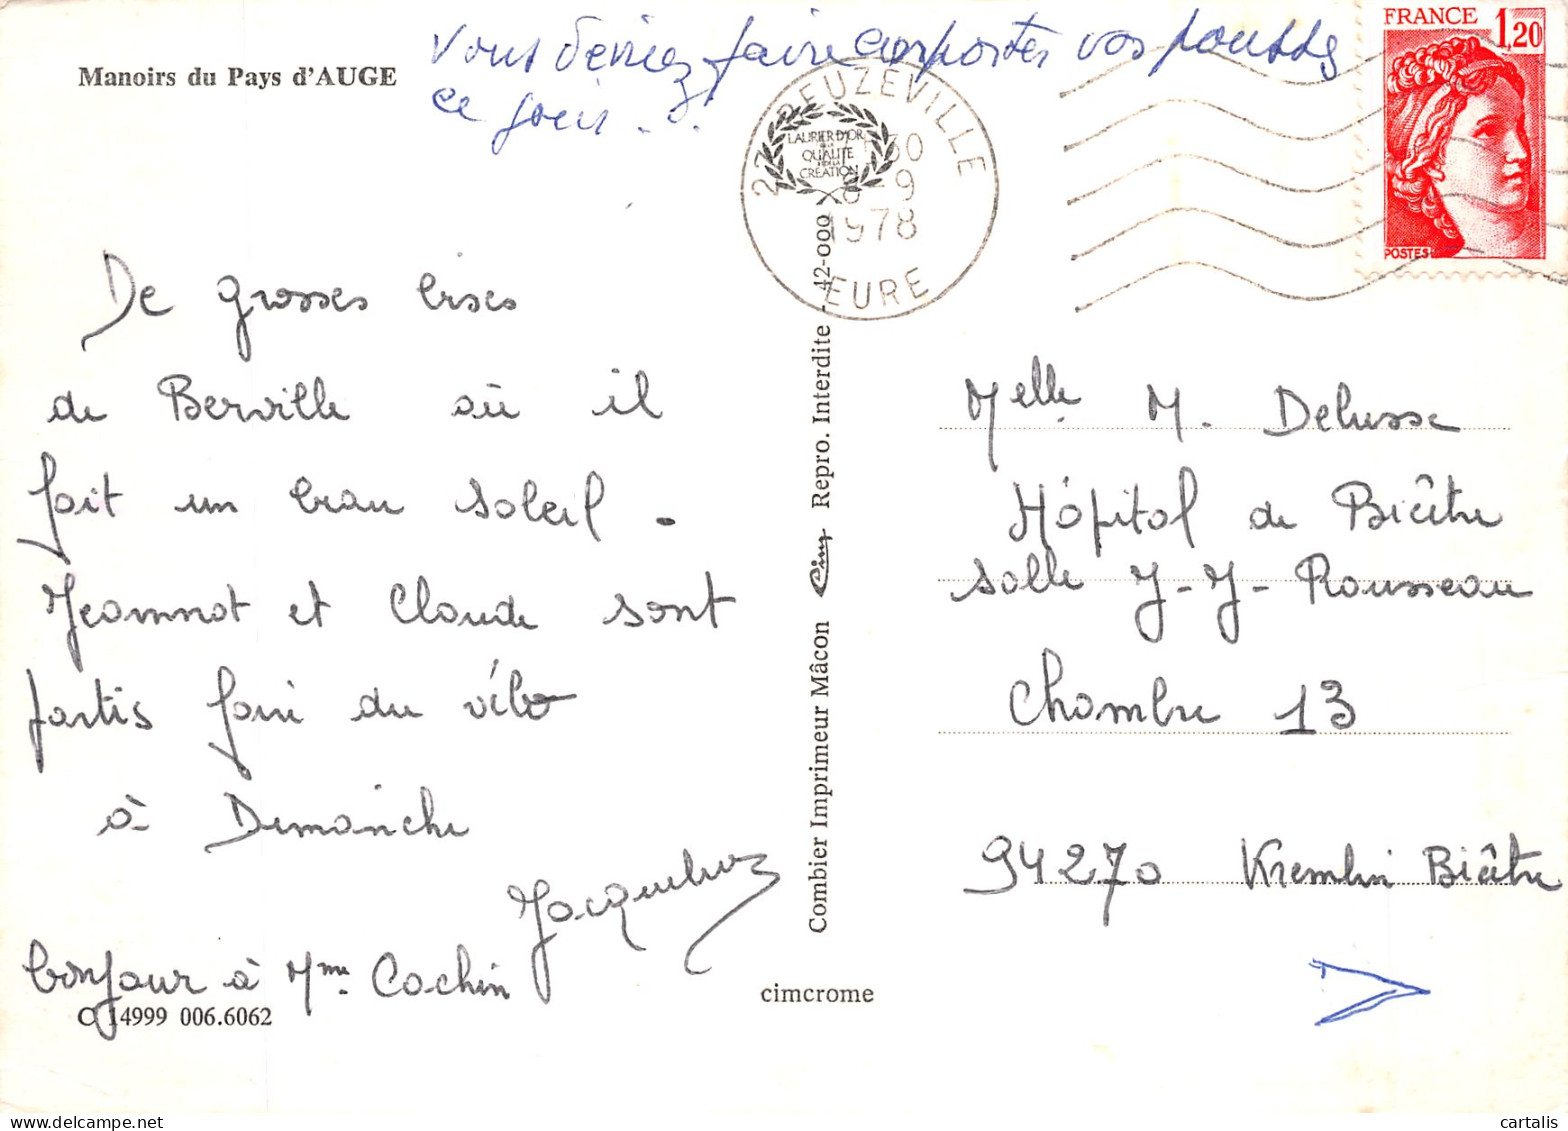 Manoirs du Pays d'AUGE
Vous devriez faire emporter vos
ce soir...
FRANCE 1,20
POSTES
27 BEUZEVILLE
30
8-9
1978
EURE
LAURIER D'OR
DE LA
QUALITE
CREATION
De grosses bises
de Berville où il
fait un beau soleil.
Jeannot et Claude sont
partis faire du vélo
à Dimanche
Jacqueline
bonjour à Mme. Cochin
C 14999 006.6062
Combier Imprimeur Mâcon Cim Repro. Interdite - 42-000
cimcrome
Melle M. Delusse
Hôpital de Bicêtre
salle J-J- Rousseau
Chambre 13
94270 Kremlin Bicêtre